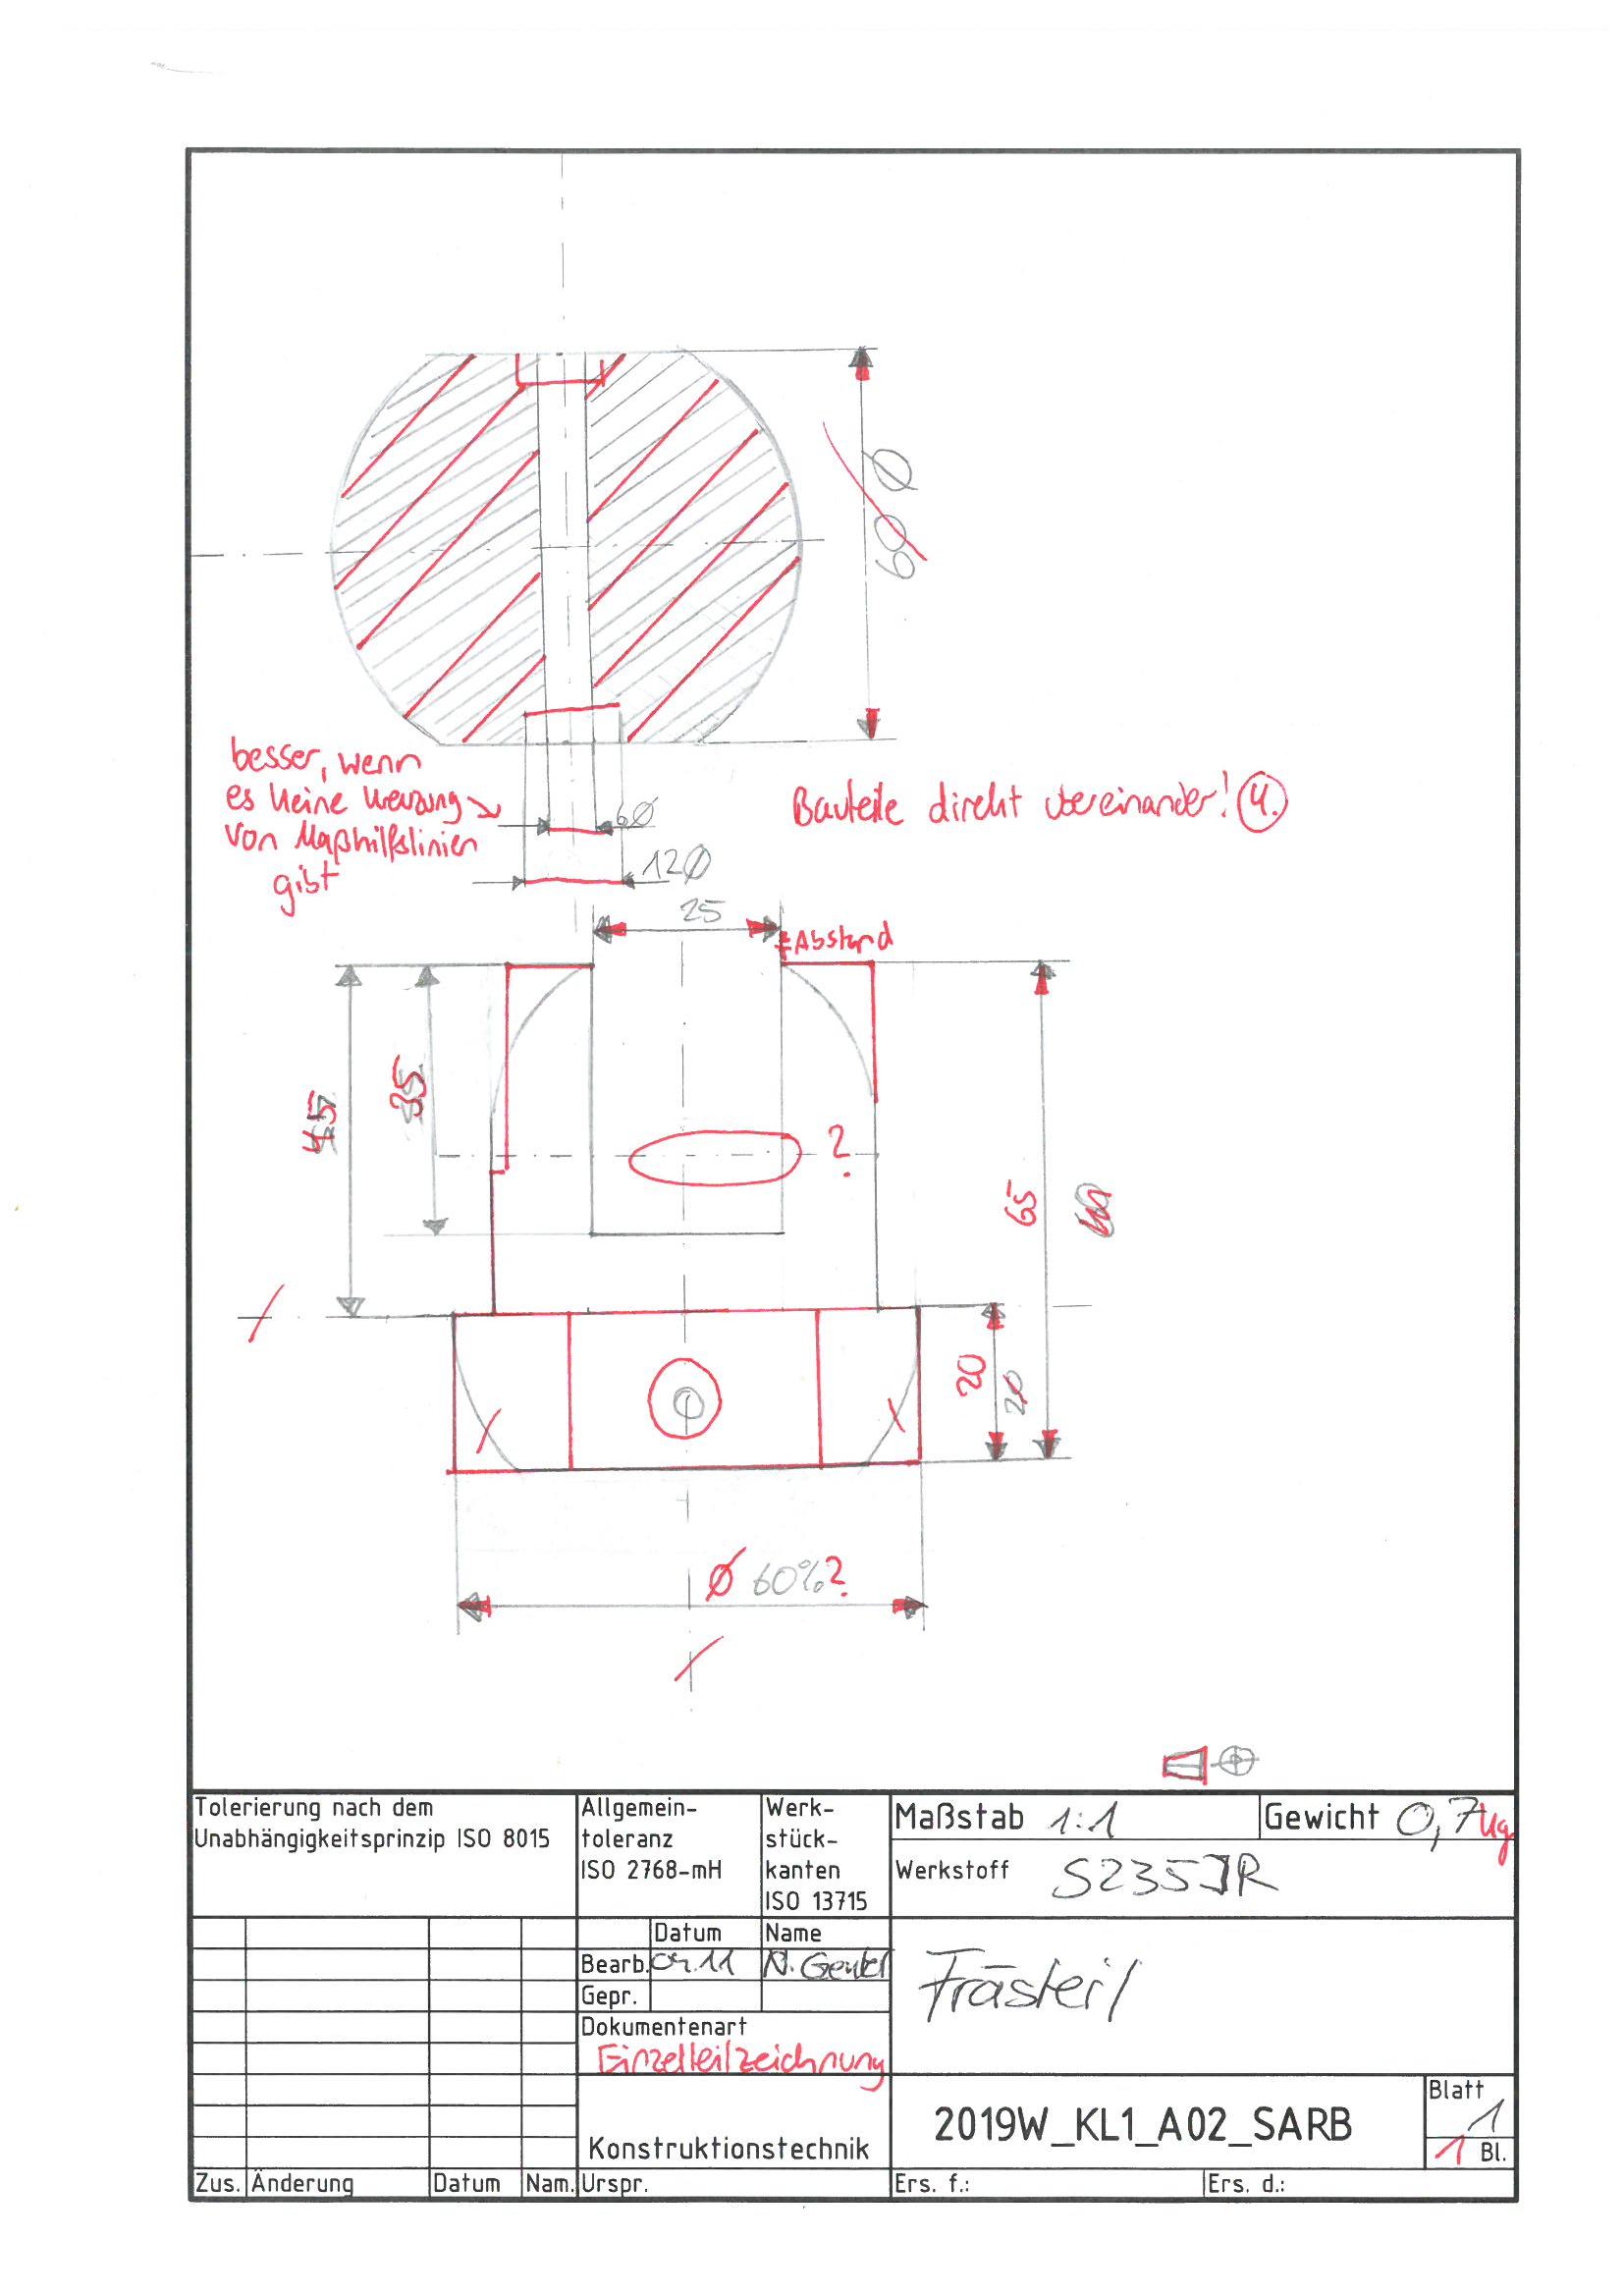 60 Ø
besser, wenn
es keine Kreuzung
von Maßhilfslinien
gibt
Bauteile direkt übereinander! 4.
6Ø
12Ø
25
Abstand
45
35
?
65
60
20
20
Ø 60%?
Tolerierung nach dem
Unabhängigkeitsprinzip ISO 8015
Allgemein-
toleranz
ISO 2768-mH
Werk-
stück-
kanten
ISO 13715
Maßstab 1:1
Gewicht 0,7kg
Werkstoff S235JR
Datum Name
Bearb. 04.11
Gepr.
Frästeil
Dokumentenart
Einzelteilzeichnung
Konstruktionstechnik
2019W_KL1_A02_SARB
Blatt
1
1 Bl.
Zus. Änderung Datum Nam. Urspr. Ers. f.: Ers. d.: